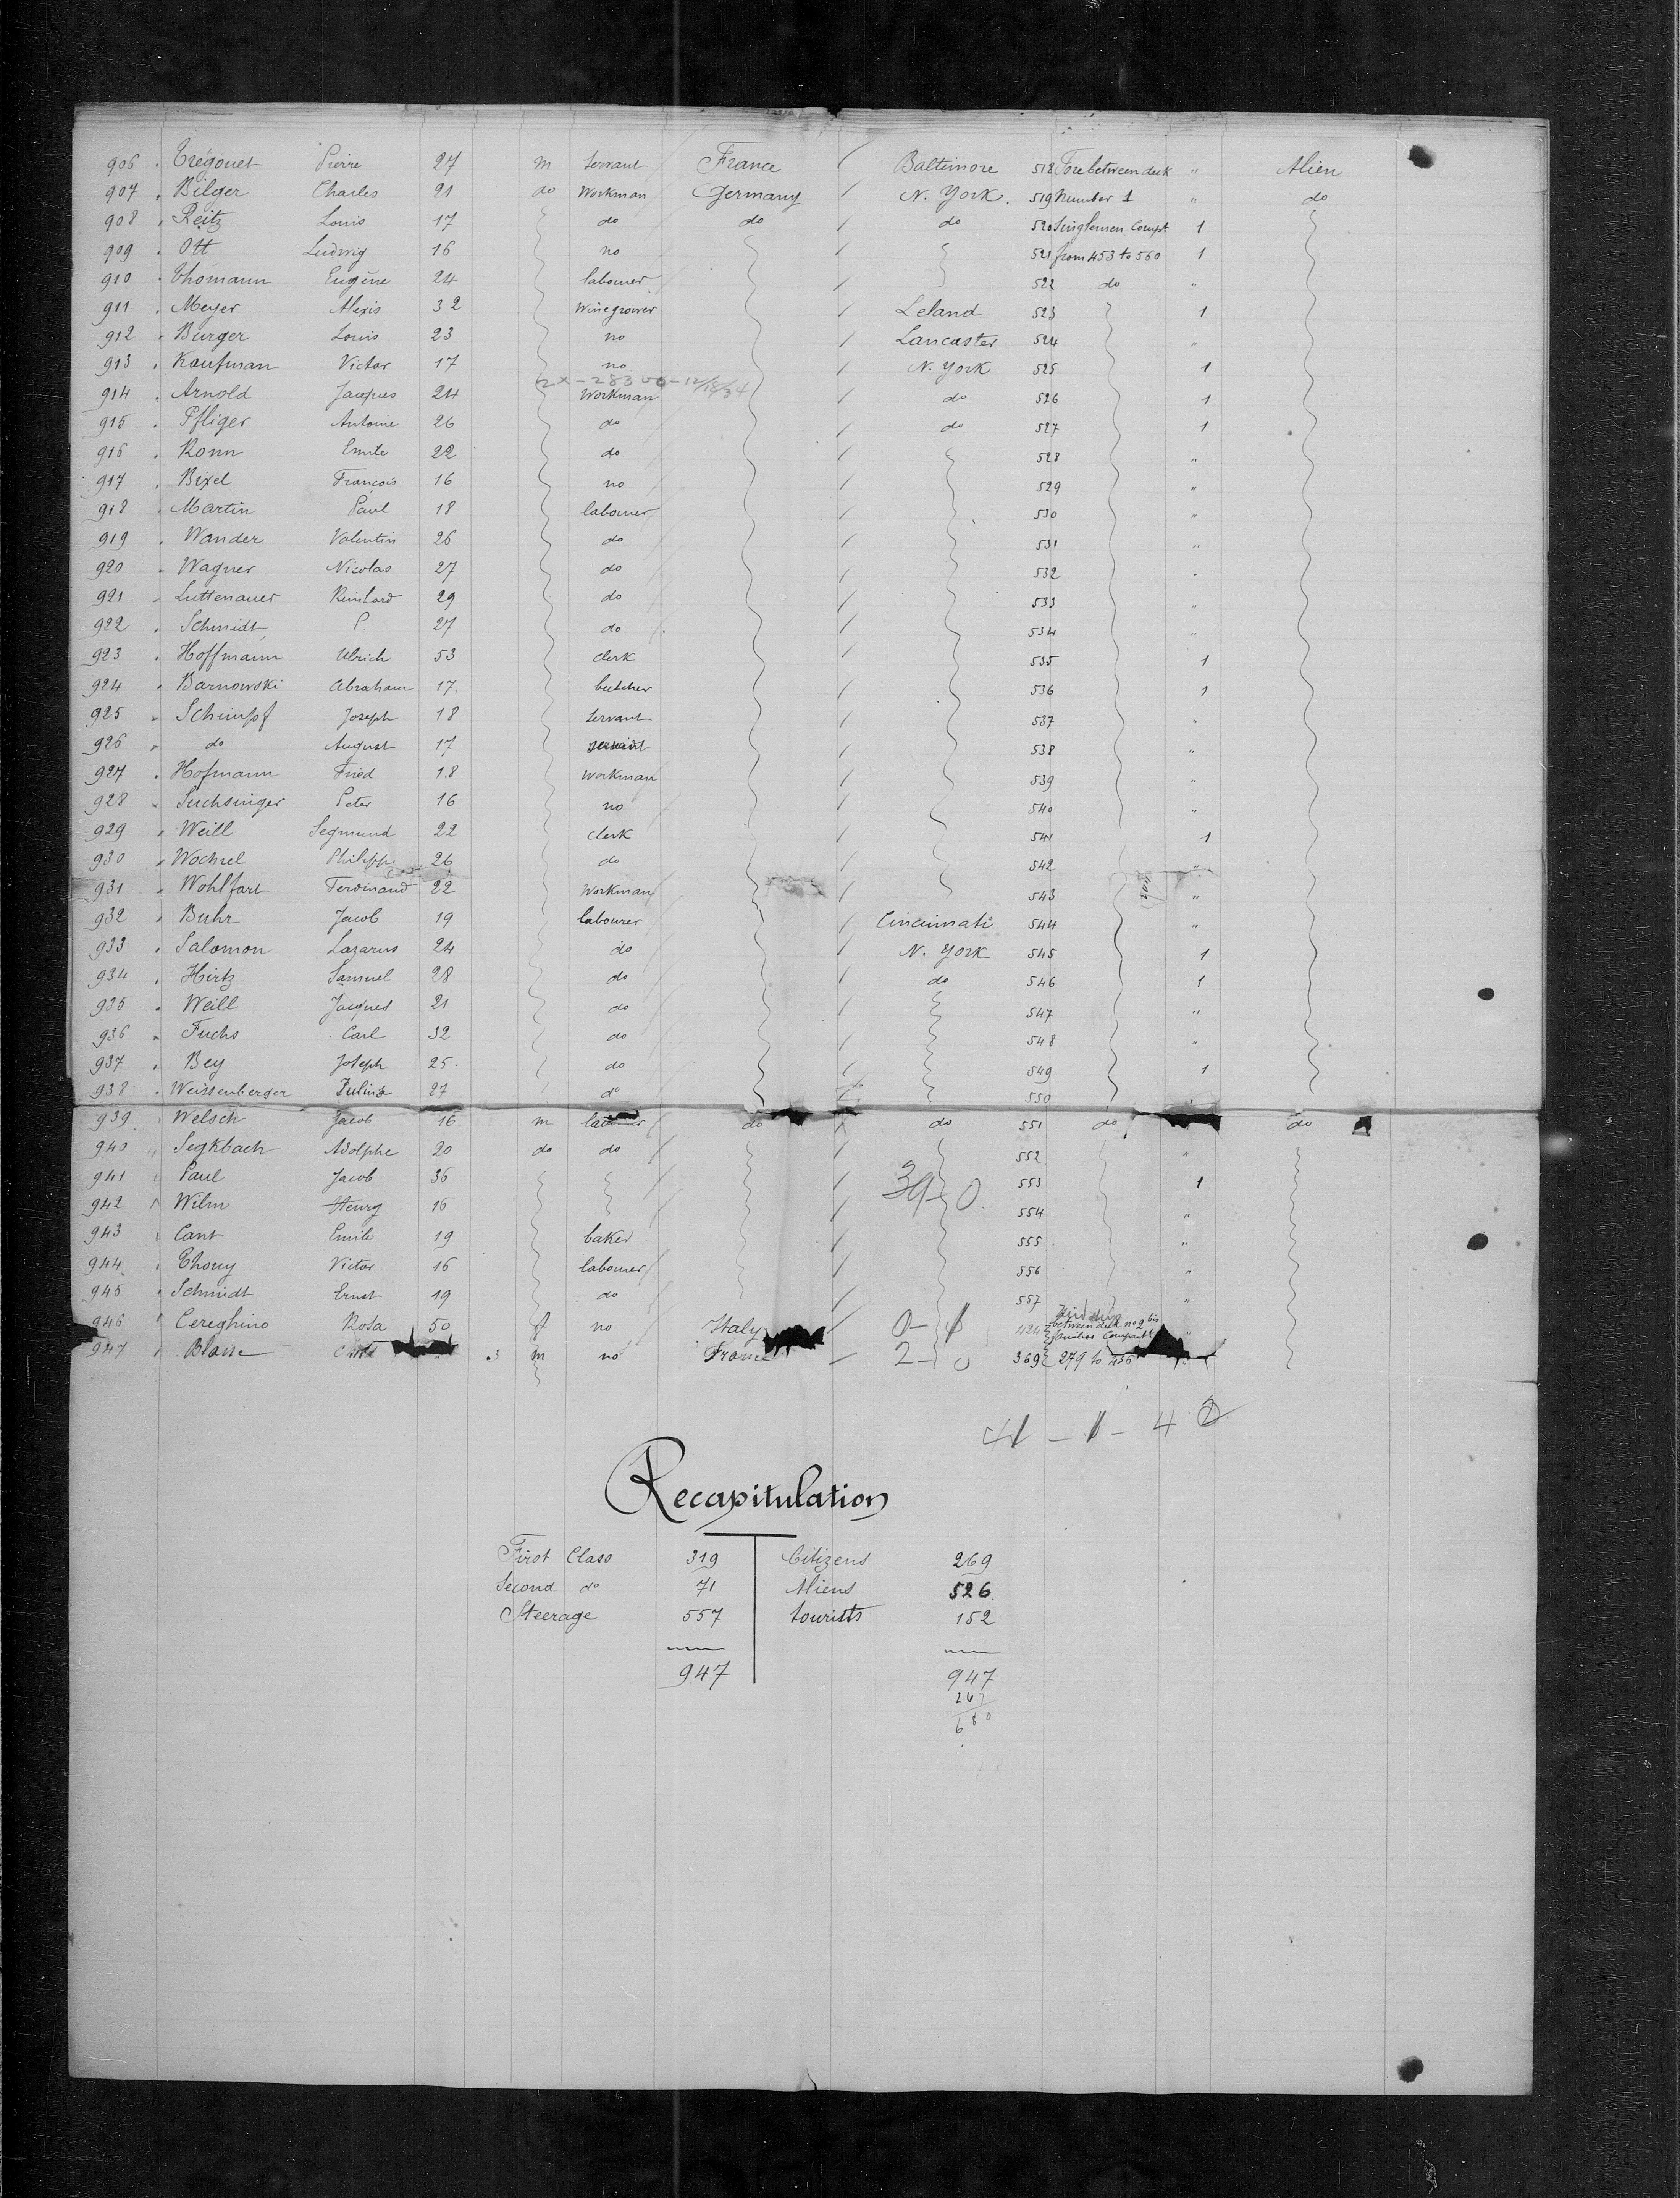 906 Trégouet Pierre 27 m Servant France Baltimore 518 Fore between deck " Alien
907 Bilger Charles 21 do Workman Germany N. York. 519 Number 1 " do
908 Reitz Louis 17 do do do 520 Singlemen Compt 1
909 Ott Ludwig 16 no 521 from 453 to 560 1
910 Thomann Eugène 24 labourer 522 do "
911 Meyer Alexis 32 Winegrower Leland 523 1
912 Burger Louis 23 no Lancaster 524 "
913 Kaufman Victor 17 no N. York 525 1
914 Arnold Jacques 24 Workman do 526 1
915 Pfliger Antoine 26 do do 527 1
916 Ronn Emile 22 do 528 "
917 Bixel François 16 no 529 "
918 Martin Paul 18 labourer 530 "
919 Wander Valentin 26 do 531 "
920 Wagner Nicolas 27 do 532
921 Luttenauer Reinhard 29 do 533 "
922 Schmidt P. 27 do 534 "
923 Hoffmann Ulrich 53 clerk 535 1
924 Barnowski Abraham 17 butcher 536 1
925 Schimpf Joseph 18 Servant 537 "
926 do August 17 servant 538 "
927 Hofmann Fried 18 Workman 539 "
928 Suchsinger Peter 16 no 540 "
929 Weill Segmund 22 clerk 541 1
930 Wochrel Philippe 26 do 542 "
931 Wohlfart Ferdinand 22 Workman 543 "
932 Buhr Jacob 19 labourer Cincinnati 544 "
933 Salomon Lazarus 24 do N. York 545 1
934 Hirtz Samuel 28 do do 546 1
935 Weill Jacques 21 do 547 "
936 Fuchs Carl 32 do 548 "
937 Bey Joseph 25 do 549 1
938 Weissenberger Julius 27 do 550
939 Welsch Jacob 16 m labourer do do 551 do do
940 Segkbach Adolphe 20 do do 552 "
941 Paul Jacob 36 39-0 553 1
942 Wilm Henry 16 554 "
943 Cant Emile 19 baker 555 "
944 Thony Victor 16 labourer 556 "
945 Schmidt Ernst 19 do 557 "
946 Cereghino Rosa 50 f no Italy 0-1 424 between deck no 2 bis families Compartt "
947 Blaise 3 m no France 2-0 369 279 to 456
41 - 1 - 42
Recapitulation
First Class 319 Citizens 269
Second do 71 Aliens 526
Steerage 557 tourists 152
947 947
267
680